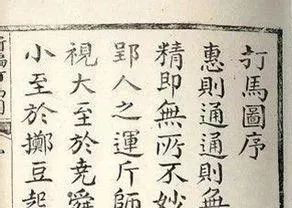 打馬圖序
惠則通通則無
精即無所不妙
郢人之運斤師
視大至於堯舜
小至於擲豆起